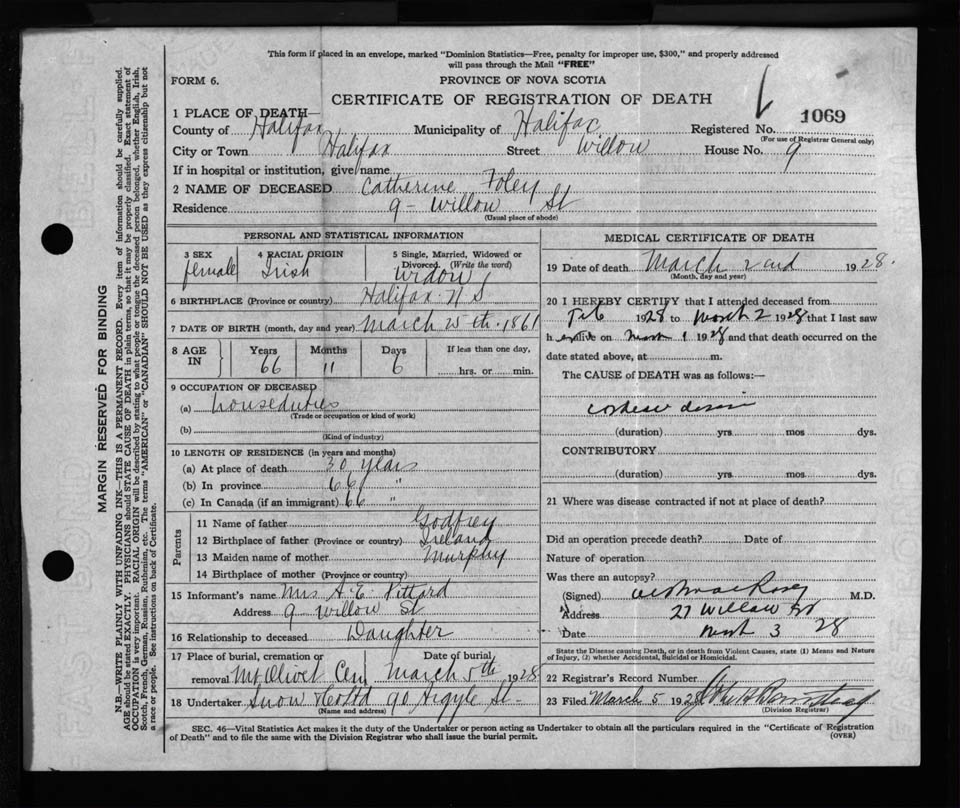 This form if placed in an envelope, marked "Dominion Statistics—Free, penalty for improper use, $300," and properly addressed
will pass through the Mail "FREE"
FORM 6.
PROVINCE OF NOVA SCOTIA
CERTIFICATE OF REGISTRATION OF DEATH
1 PLACE OF DEATH—
County of Halifax Municipality of Halifax Registered No. 1069
(For use of Registrar General only)
City or Town Halifax Street Willow House No. 9
If in hospital or institution, give name
2 NAME OF DECEASED Catherine Foley
Residence 9 - Willow St
(Usual place of abode)
PERSONAL AND STATISTICAL INFORMATION
3 SEX 4 RACIAL ORIGIN 5 Single, Married, Widowed or
Divorced. (Write the word)
female Irish Widow
6 BIRTHPLACE (Province or country) Halifax N S
7 DATE OF BIRTH (month, day and year) March 25th. 1861
8 AGE IN Years Months Days If less than one day,
66 11 6 hrs. or min.
9 OCCUPATION OF DECEASED
(a) houseduties
(Trade or occupation or kind of work)
(b)
(Kind of industry)
10 LENGTH OF RESIDENCE (in years and months)
(a) At place of death 30 years
(b) In province 66 "
(c) In Canada (if an immigrant) 66 "
Parents
11 Name of father Godfrey
12 Birthplace of father (Province or country) Ireland
13 Maiden name of mother Murphy
14 Birthplace of mother (Province or country)
15 Informant's name Mrs A. E.
Address 9 - Willow St
16 Relationship to deceased Daughter
17 Place of burial, cremation or Date of burial
removal Mt Olivet Cem March 5th 1928
18 Undertaker Snow & Co Ltd 90 Argyle St
(Name and address)
MEDICAL CERTIFICATE OF DEATH
19 Date of death March 2nd 1928.
(Month, day and year)
20 I HEREBY CERTIFY that I attended deceased from
Feb 1928 to March 2 1928 that I last saw
h er alive on March 1 1928 and that death occurred on the
date stated above, at m.
The CAUSE of DEATH was as follows:—
(duration) yrs. mos dys.
CONTRIBUTORY
(duration) yrs. mos. dys.
21 Where was disease contracted if not at place of death?
Did an operation precede death? Date of
Nature of operation
Was there an autopsy?
(Signed) M.D.
Address 27 Willow St
Date March 3 28
State the Disease causing Death, or in death from Violent Causes, state (1) Means and
Nature of Injury, (2) whether Accidental, Suicidal or Homicidal.
22 Registrar's Record Number
23 Filed March 5 1928
(Division Registrar)
SEC. 46—Vital Statistics Act makes it the duty of the Undertaker or person acting as Undertaker to obtain all the particulars required in the "Certificate of Registration
of Death" and to file the same with the Division Registrar who shall issue the burial permit.
(OVER)
MARGIN RESERVED FOR BINDING
N.B.—WRITE PLAINLY WITH UNFADING INK—THIS IS A PERMANENT RECORD. Every item of information should be carefully supplied.
AGE should be stated EXACTLY. PHYSICIANS should STATE CAUSE OF DEATH in plain terms, so that it may be properly classified. Exact statement of
OCCUPATION is very important. RACIAL ORIGIN will be described by stating to what people or tongue the deceased person belonged, whether English, Irish,
Scotch, French, German, Russian, Ruthenian, etc. The terms "AMERICAN" or "CANADIAN" SHOULD NOT BE USED as they express citizenship but not
a race or people. See instructions on back of Certificate.